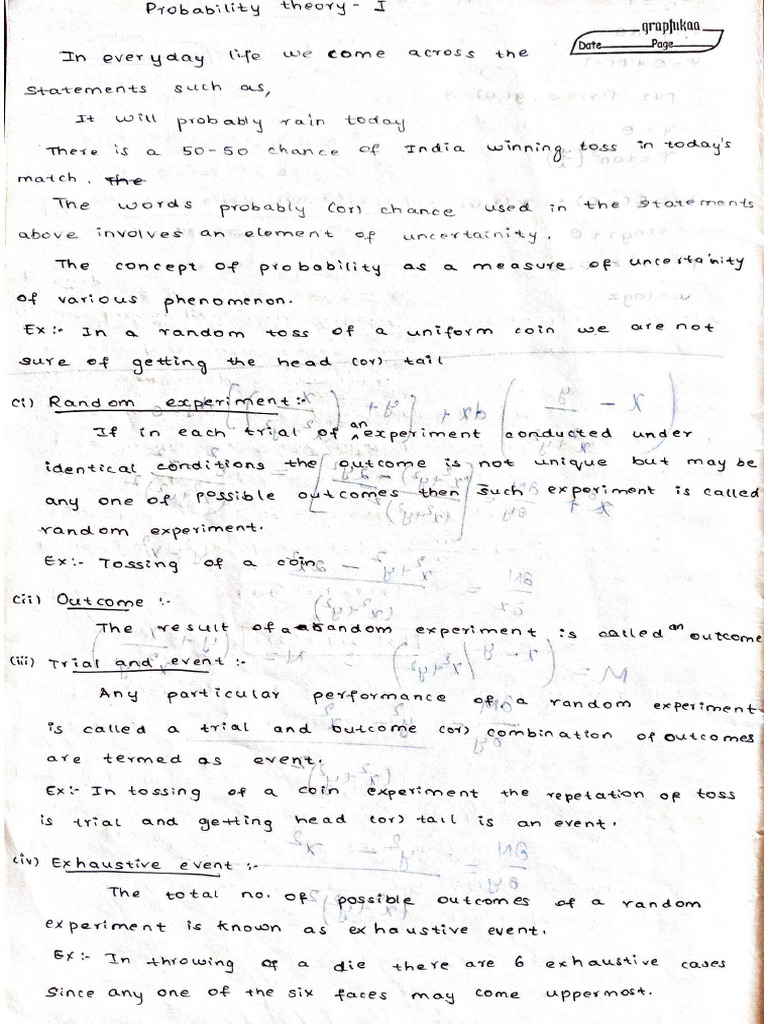 Probability theory - I
graphikaa
Date Page
In everyday life we come across the
statements such as,
It will probably rain today
There is a 50-50 chance of India winning toss in today's
match. The
The words probably (or) chance used in the statements
above involves an element of uncertainity.
The concept of probability as a measure of uncertainity
of various phenomenon.
Ex:- In a random toss of a uniform coin we are not
sure of getting the head (or) tail
(i) Random experiment:-
If in each trial of an experiment conducted under
identical conditions the outcome is not unique but may be
any one of possible outcomes then such experiment is called
random experiment.
Ex:- Tossing of a coin
(ii) Outcome :-
The result of a random experiment is called an outcome
(iii) Trial and event :-
Any particular performance of a random experiment
is called a trial and outcome (or) combination of outcomes
are termed as event.
Ex:- In tossing of a coin experiment the repetation of toss
is trial and getting head (or) tail is an event.
(iv) Exhaustive event :-
The total no. of possible outcomes of a random
experiment is known as exhaustive event.
Ex:- In throwing of a die there are 6 exhaustive cases
Since any one of the six faces may come uppermost.